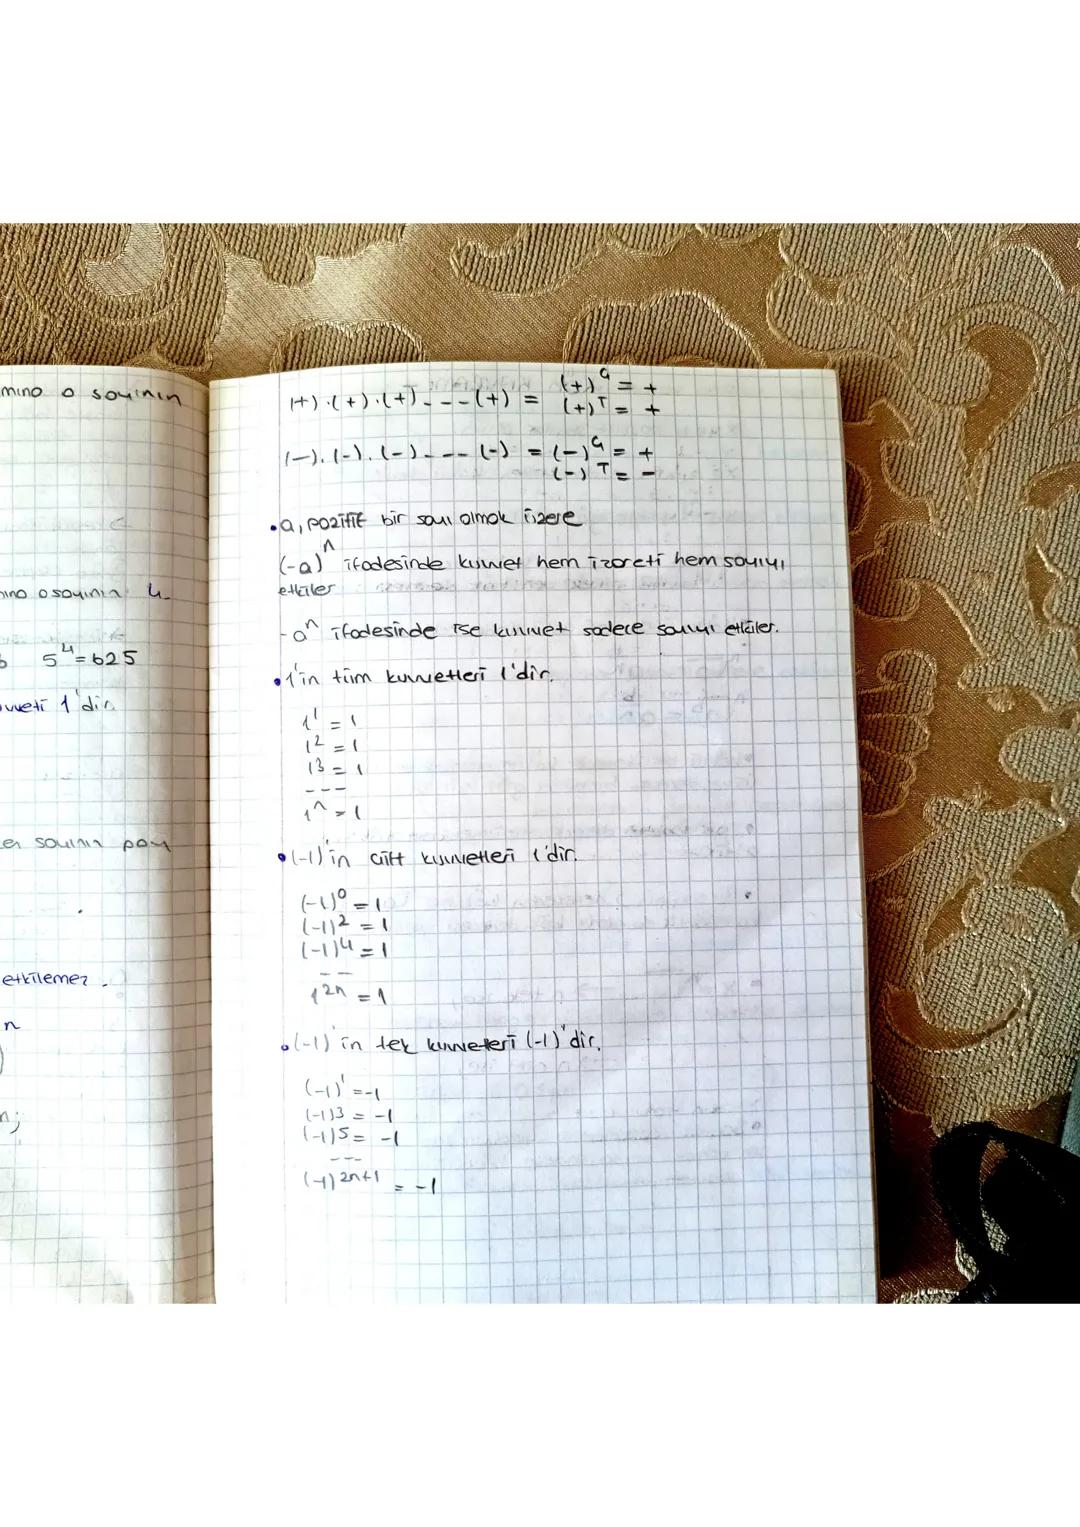 mino o sayının
mino o sayının 4-
5⁴=625
uvveti 1'dir.
sayının pay
etkilemez.
n
n;
(+).(+).(+)---(+) = (+)ᶜ̧ = +
(+)ᵀ = +
(-).(-).(-)---(-) = (-)ᶜ̧ = +
(-)ᵀ = -
•a, pozitif bir sayı olmak üzere
(-a)ⁿ ifadesinde kuvvet hem işareti hem sayıyı
etkiler
-aⁿ ifadesinde ise kuvvet sadece sayıyı etkiler.
•1'in tüm kuvvetleri 1'dir.
1¹ = 1
1² = 1
1³ = 1
---
1ⁿ = 1
•(-1)'in çift kuvvetleri 1'dir.
(-1)⁰ = 1
(-1)² = 1
(-1)⁴ = 1
--
1²ⁿ = 1
•(-1)'in tek kuvveteri (-1)'dir.
(-1)¹ = -1
(-1)³ = -1
(-1)⁵ = -1
---
(-1)²ⁿ⁺¹ = -1